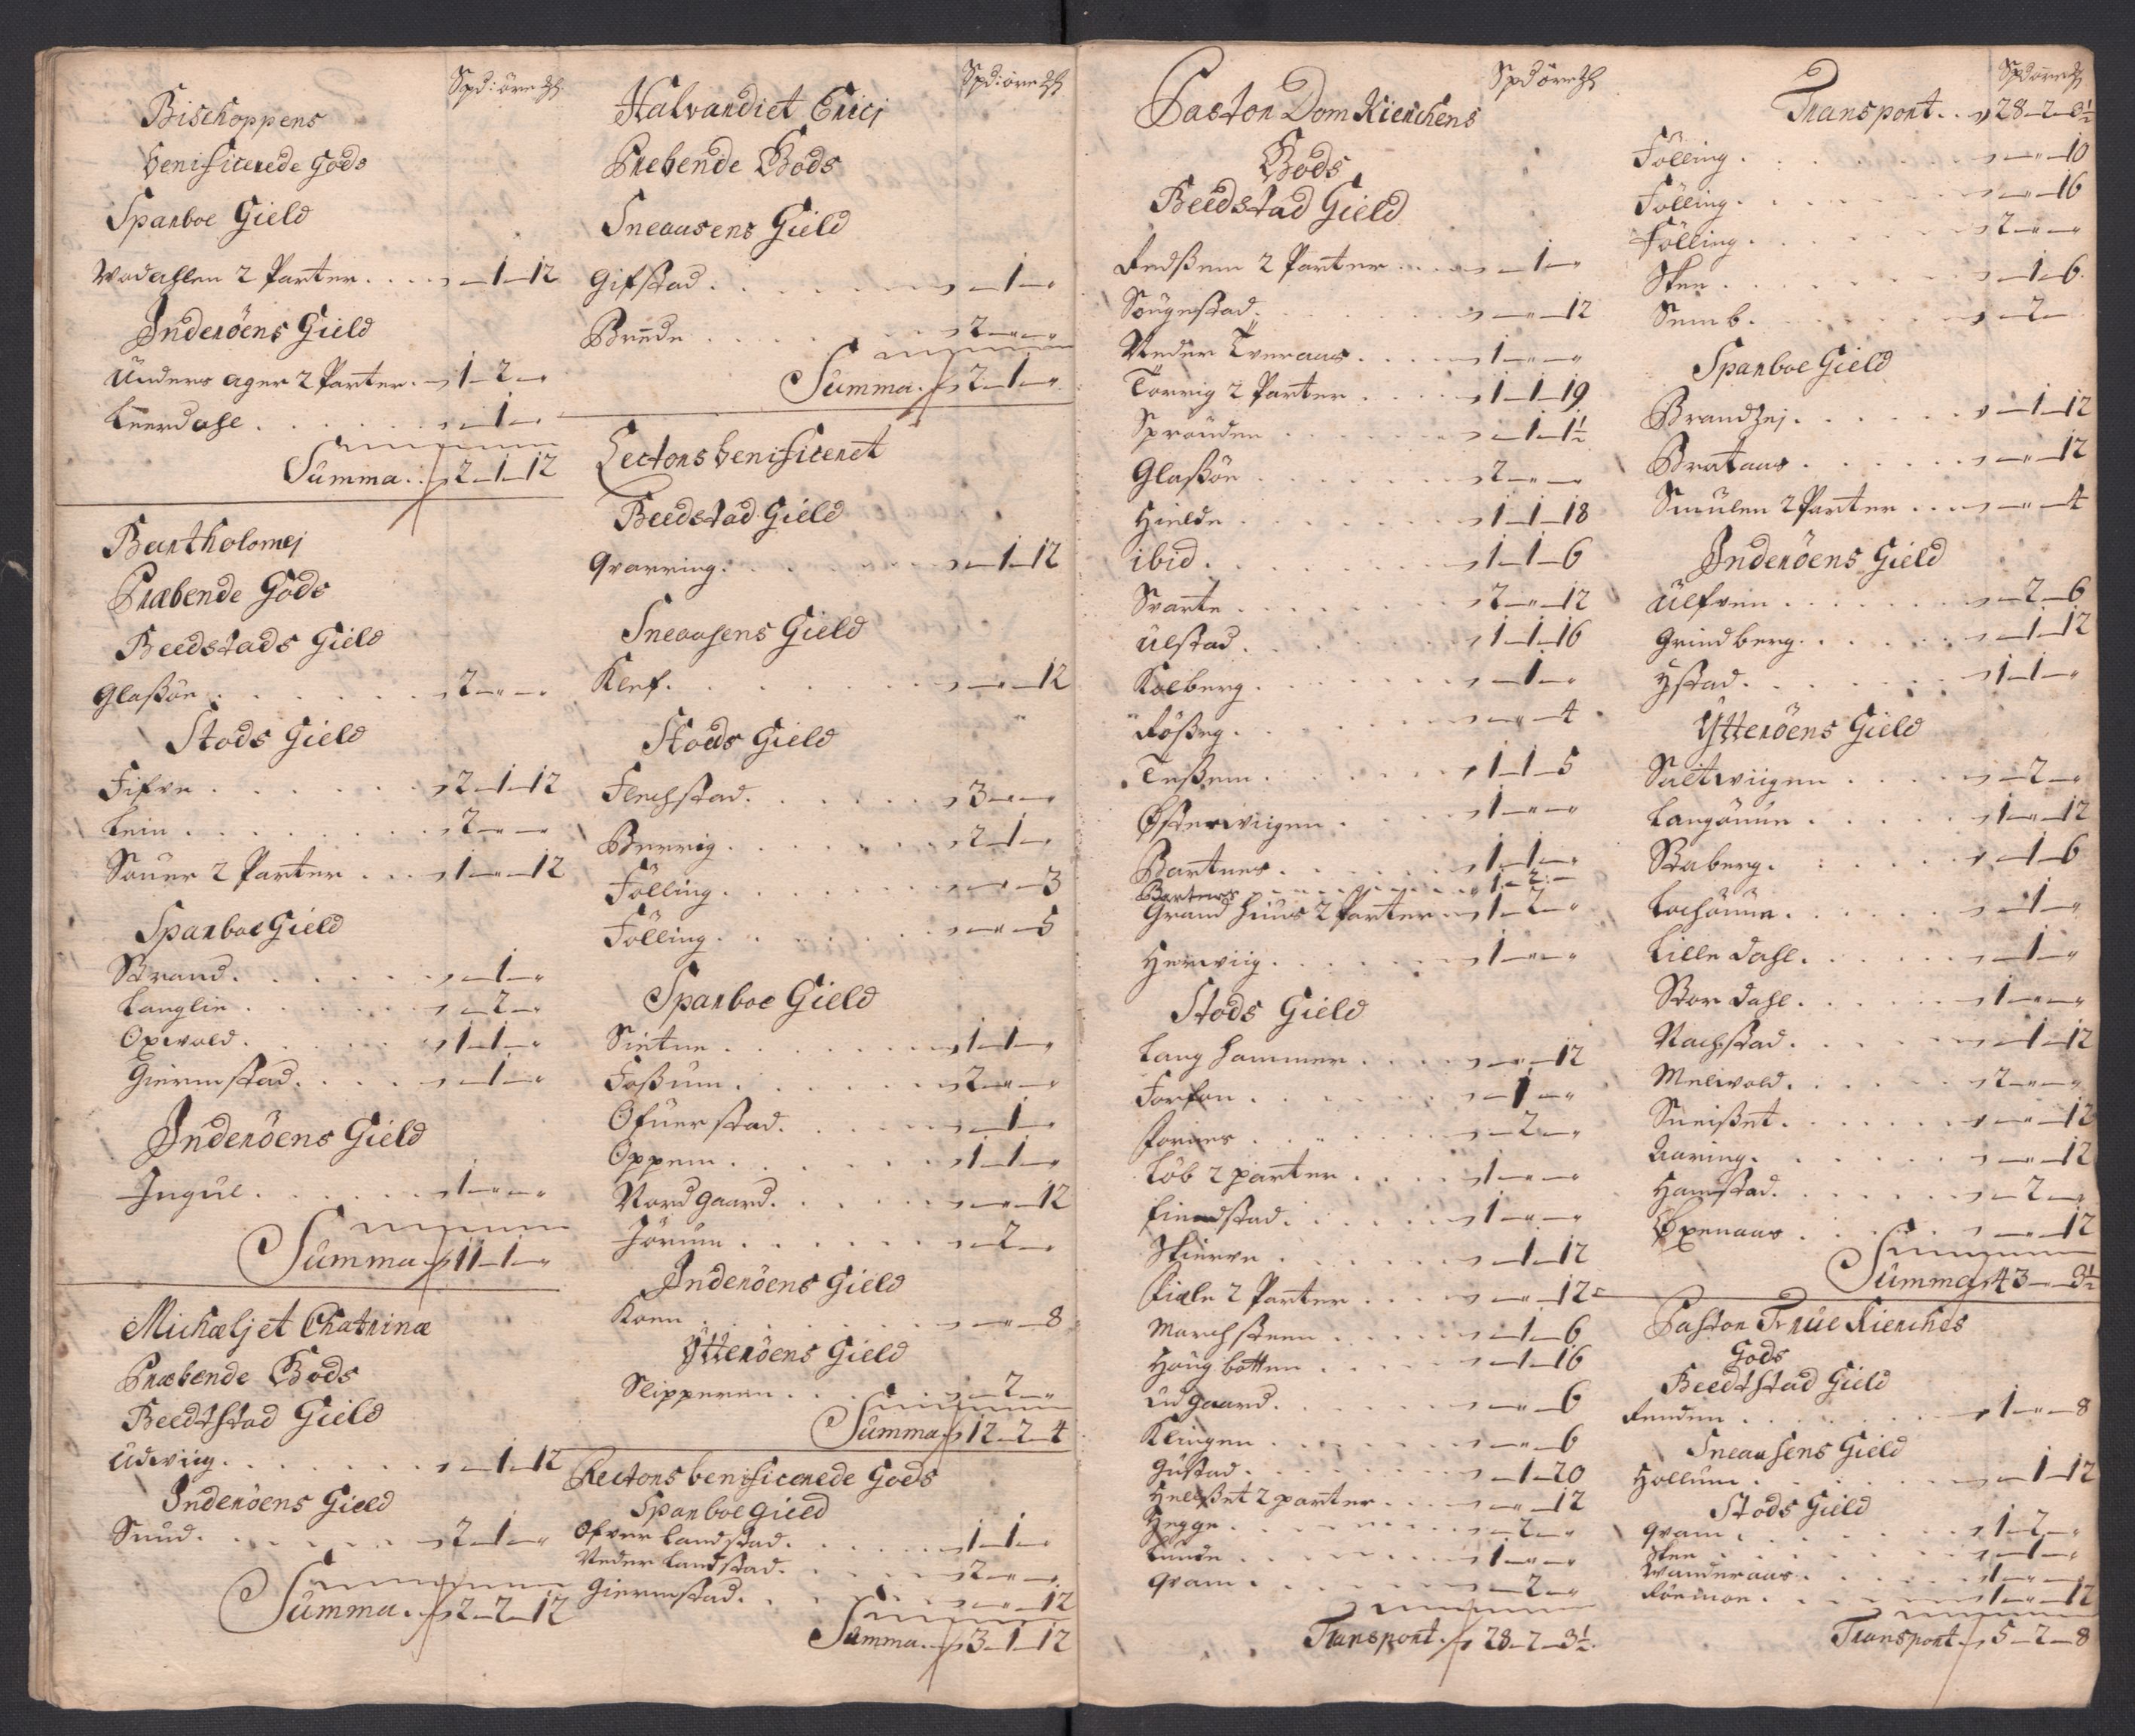 Spd: öre ₰
Bischoppens
benificerede gods
Sparboe Gield
Wodahlen 2 Parter . . . . " — 1 — 12
Inderöens Gield
Unders ager 2 Parter . " 1 — 2 — "
Leerdahl . . . . . " — 1 — "
Summa . . 2 — 1 — 12
Bartholomej
Præbende Gods
Beedstads Gield
Glaßöe . . . . . 2 — " — "
Stods Gield
Fifve . . . . . 2 — 1 — 12
Lein . . . . . 2 — " — "
Souer 2 Parter . . . 1 — " — 12
Sparboe Gield
Strand . . . . . " — 1 — "
Langlie . . . . . " — 2 — "
Opvold . . . . . 1 — 1 — "
Giermstad . . . . " — 1 — "
Inderöens Gield
Ingul . . . . . 1 — " — "
Summa 11 — 1 — "
Michælj et Chatrinæ
Præbende Gods
Beedtstad Gield
Udwiig . . . . . " — 1 — 12
Inderöens Gield
Sund . . . . . 2 — 1 — "
Summa . 2 — 2 — 12
Spd: öre ₰
Halvardi et Ericj
Prebende Gods
Sneaasens Gield
Gifstad . . . . . " — 1 — "
Brede . . . . . 2 — " — "
Summa . 2 — 1 — "
Lectors benificeret
Beedstad Gield
Qvarving . . . . . " — 1 — 12
Sneaasens Gield
Klef . . . . . " — " — 12
Stods Gield
Flechstad . . . . . 3 — " — "
Berrig . . . . . 2 — 1 — "
Fölling . . . . . " — " — 3
Fölling . . . . . " — " — 5
Sparboe Gield
Sietne . . . . . 1 — 1 — "
Foßum . . . . . 2 — " — "
Ofuerstad . . . . . " — 1 — "
Oppem . . . . . 1 — 1 — "
Nordgaard . . . . . " — " — 12
Jörum . . . . . " — 2 — "
Inderöens Gield
Korn . . . . . " — " — 8
Ytteröens Gield
Slipperen . . . . . " — 2 — "
Summa 12 — 2 — 4
Rectors benificerede Gods
Sparboe gield
Ofver Landstad . . . . . 1 — 1 — "
Neder Landstad . . . . . 2 — " — "
Giermstad . . . . . " — " — 12
Summa . 3 — 1 — 12
Spd öre ₰
Pastor Dom Kierchens
Gods
Beedstad Gield
Fedßem 2 Parter . . . " — 1 — "
Sougestad . . . . . " — " — 12
Neder Tveraas . . . . 1 — " — "
Torrig 2 Parter . . . . 1 — 1 — 19
Sprouden . . . . . " — 1 — 1½
Glaßöe . . . . . 2 — " — "
Hielde . . . . . 1 — 1 — 18
ibid . . . . . 1 — 1 — 6
Svarte . . . . . 2 — " — 12
Ulstad . . . . . 1 — 1 — 16
Kolberg . . . . . " — 1 — "
Fößeg . . . . . " — " — 4
Teßem . . . . . 1 — 1 — 5
Østerwiigen . . . . 1 — " — "
Bartnes . . . . . 1 — 1 — "
Bartnes . . . . . 1 — 2 — "
Grand huus 2 Parter . 1 — 2 — "
Herwiig . . . . . 1 — " — "
Stods Gield
Lang hammer . . . . " — " — 12
Forfon . . . . . " — 1 — "
Fornes . . . . . " — 2 — "
Löb 2 parter . . . . 1 — " — "
Findstad . . . . . 1 — " — "
Skierve . . . . . " — 1 — 12
Fiole 2 Parter . . . " — " — 12
Marchsteen . . . . . " — 1 — 6
Houg botten . . . . " — 1 — 16
Lidgaard . . . . . " — " — 6
Klingen . . . . . " — " — 6
Gustad . . . . . " — 1 — 20
Helßet 2 parter . . . " — " — 12
Hegge . . . . . " — 2 — "
Lunde . . . . . 1 — " — "
Qvam . . . . . " — 2 — "
Transport . 28 — 2 — 3½
Spd öre ₰
Transport . . 28 — 2 — 3½
Fölling . . . . . " — " — 10
Fölling . . . . . " — " — 16
Fölling . . . . . 2 — " — "
Skee . . . . . " — 1 — 6
Semb . . . . . " — 2 — "
Sparboe Gield
Brandhej . . . . . " — 1 — 12
Brataas . . . . . " — " — 12
Smulen 2 Parter . . . " — " — 4
Inderöens Gield
Ulfven . . . . . " — 2 — 6
Grindberg . . . . . " — 1 — 12
Ystad . . . . . 1 — 1 — "
Ytteröens Gield
Saltwiigen . . . . . " — 2 — "
Langönne . . . . . 1 — " — 12
Staberg . . . . . " — 1 — 6
Lochönne . . . . . " — 1 — "
Lille dahl . . . . . " — 1 — "
Stor dahl . . . . . 1 — " — "
Nachstad . . . . . " — 1 — 12
Melwold . . . . . 2 — " — "
Sneißet . . . . . " — " — 12
Aaring . . . . . " — " — 12
Hamstad . . . . . " — 2 — "
Exenaas . . . . . " — " — 12
Summa 43 — " — 3½
Pastor Frue Kierches
Gods
Beedtstad Gield
Fenden . . . . . 1 — " — 8
Sneaasens Gield
Hollum . . . . . " — 1 — 12
Stods Gield
Qvam . . . . . 1 — 2 — "
Skee . . . . . " — 1 — "
Wanderaas . . . . . 1 — " — "
Förmoe . . . . . 1 — " — 12
Transport 5 — 2 — 8